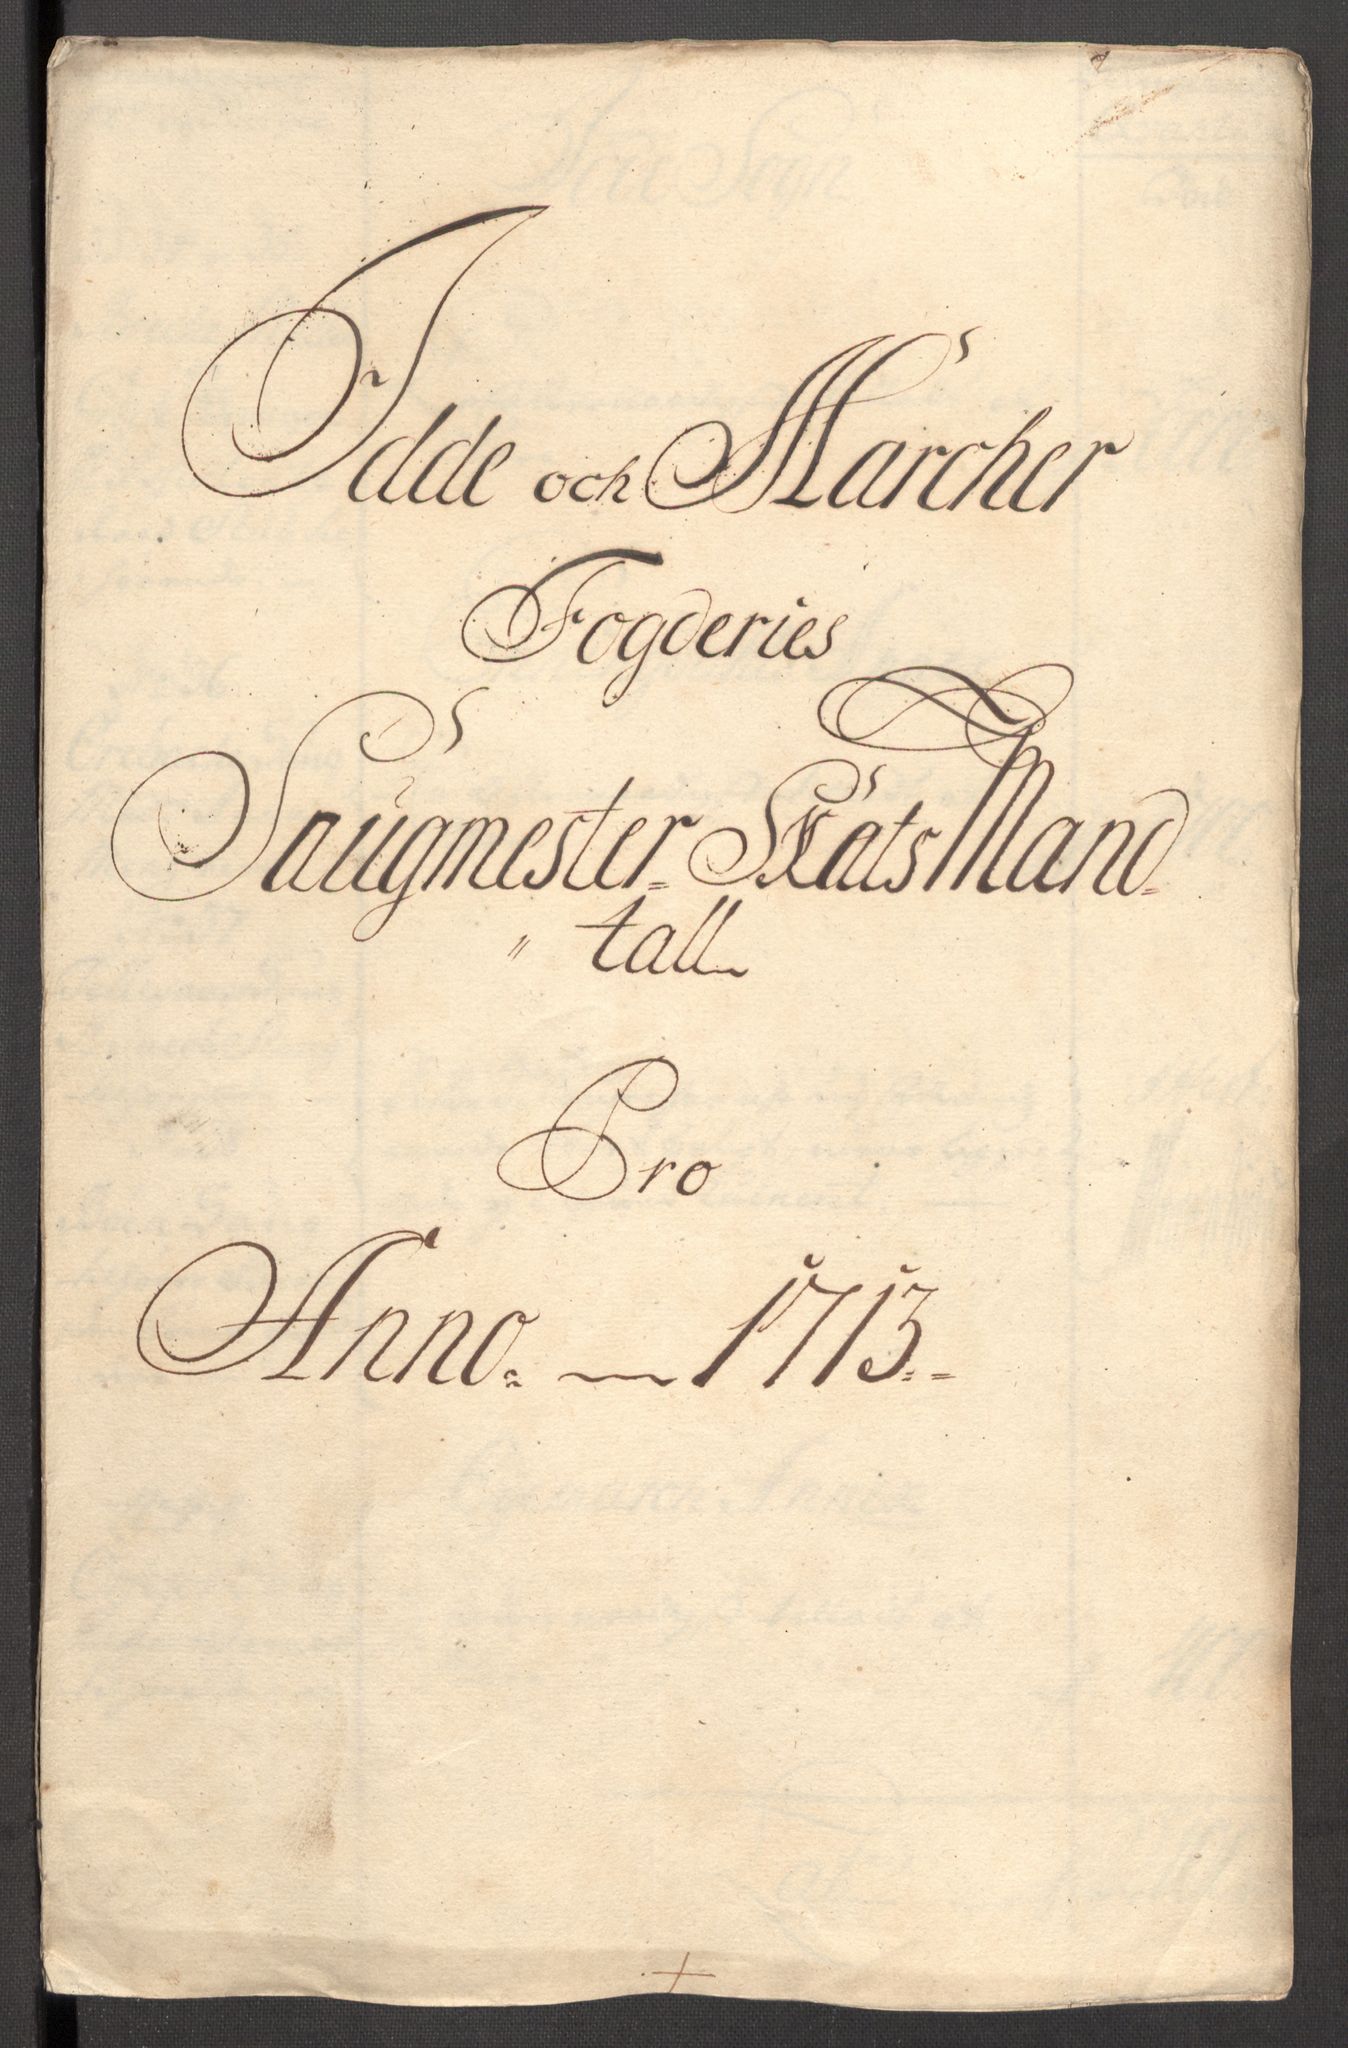 Idde och Marcher
Fogderies
Saugmester= Skats Mand=
" tall
Pro
Anno. 1713.